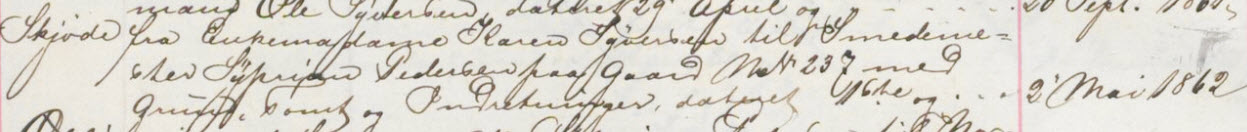 mand Ole Syversen, dateret 29 April og . . . . . 20 Sept. 1861
Skjøde fra Enkemadame Karen Syversen til Smedeme=
ster Syprian Pedersen paa Gaard No 237 med
Grund, Tomt og Indretninger, dateret 16de og . . . 2 Mai 1862